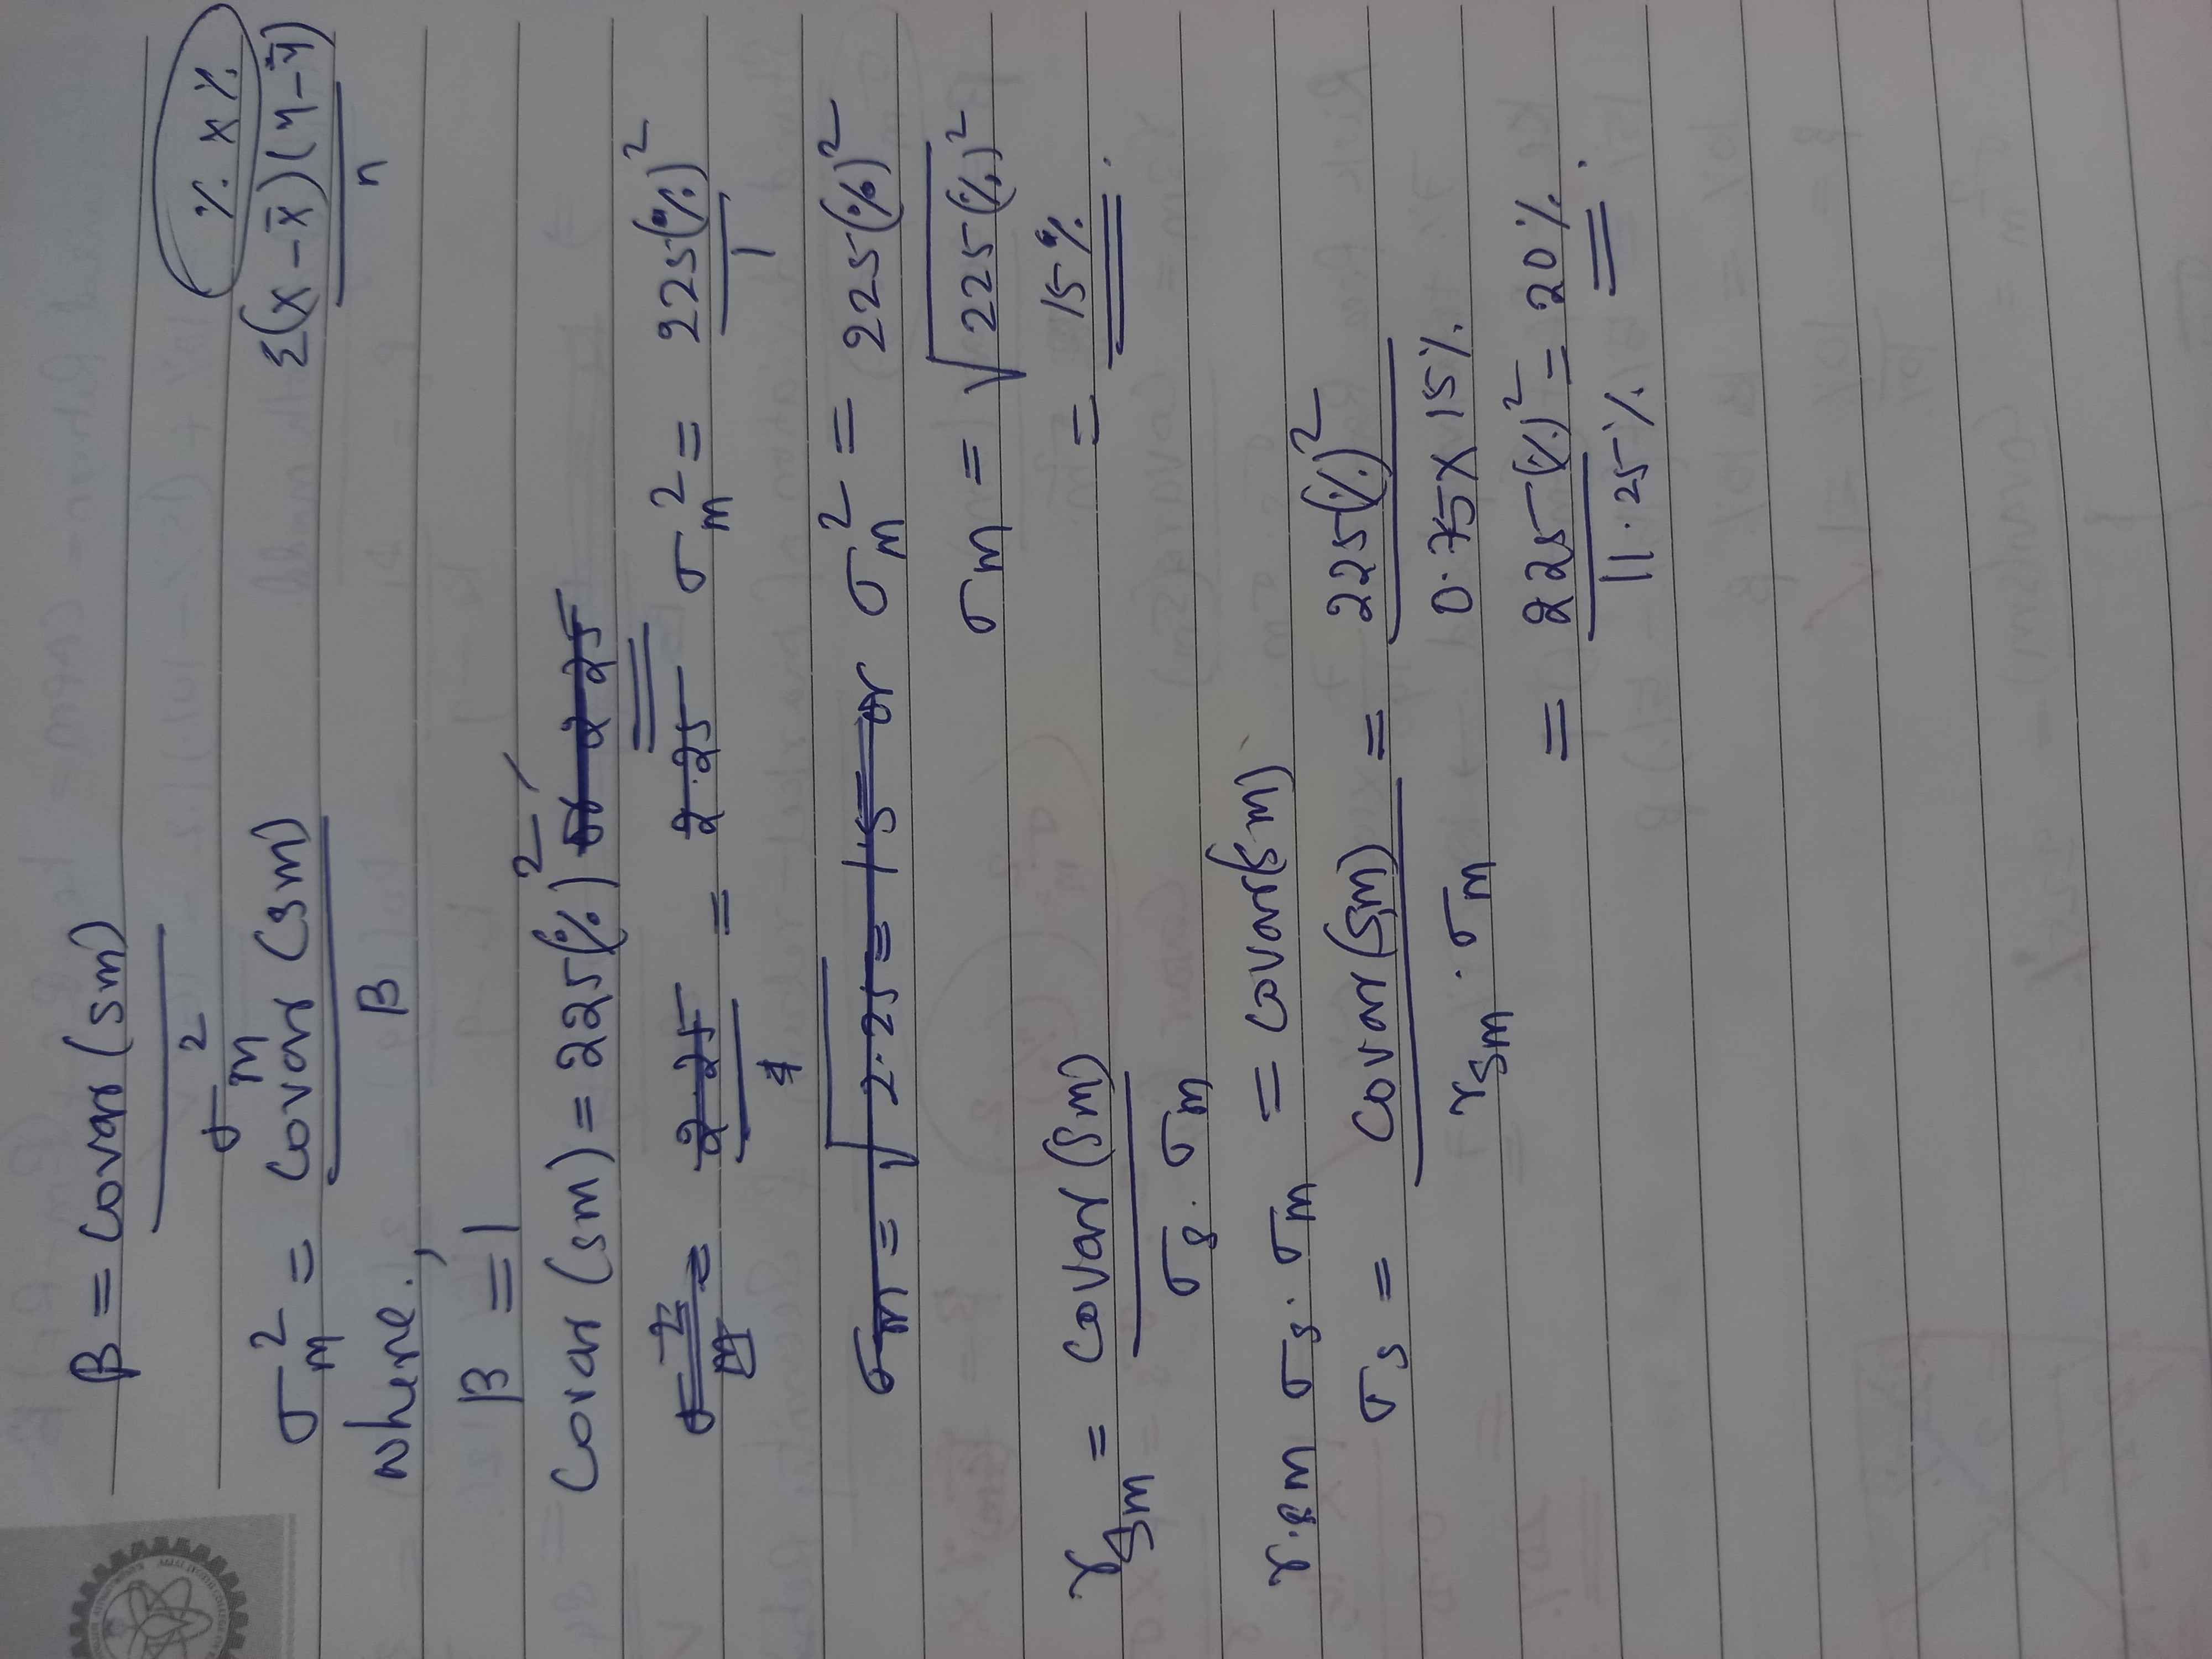 % x %
β = Covar (sm) / σm²
σm² = Covar (sm) / β
Σ(x-x̄)(y-ȳ) / n
where,
β = 1
Covar (sm) = 225(%)²
σm² = 225(%)² / 1
σm = √2.25 = 1.5 or σm² = 225(%)²
σm = √225(%)²
= 15%
rsm = Covar (sm) / σs. σm
r.sm σs. σm = Covar(sm)
σs = Covar(sm) / rsm . σm = 225(%)² / 0.75 x 15%
= 225(%)² / 11.25% = 20%.